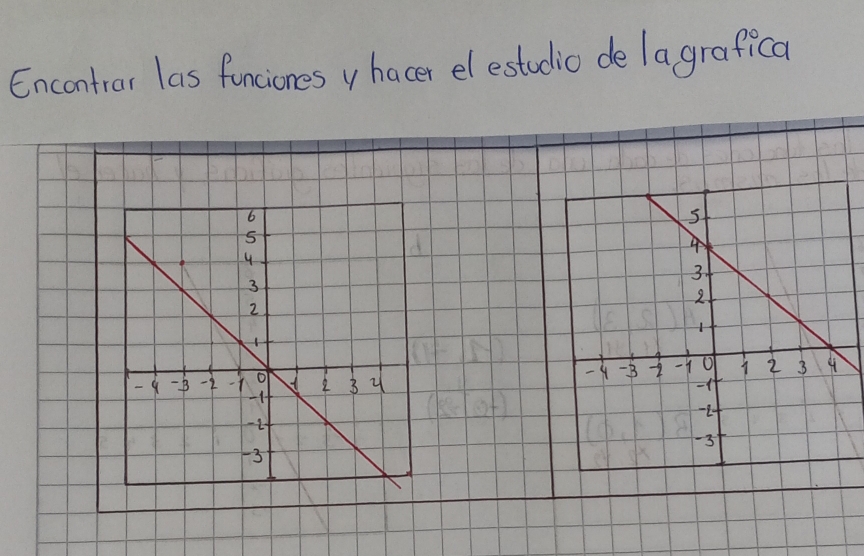 Encontrar las funciones y hacer el estudio de la grafica
6
5
4
3
2
1
-4 -3 -2 -1 0 1 2 3 4
-1
-2
-3
5
4
3
2
1
-4 -3 -2 -1 0 1 2 3 4
-1
-2
-3